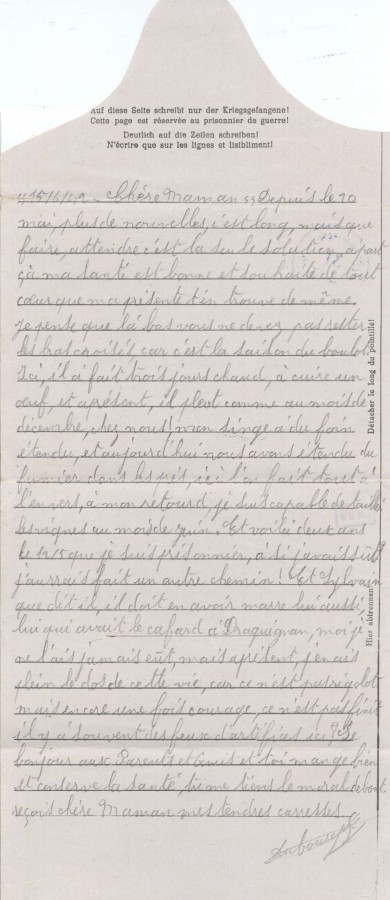 Auf diese Seite schreibt nur der Kriegsgefangene!
Cette page est réservée au prisonnier de guerre!
Deutlich auf die Zeilen schreiben!
N'écrire que sur les lignes et lisiblment!
Chére Maman Depuis le 20
mai, plus de nouvelles, c'est long, mais que
faire, attendre c'est la seule solution, apart
çà ma santé est bonne et souhaite de tout
cœur que ma présente t'en trouve de même.
Je pense que là bas vous ne devez pas rester
les bras croisés, car c'est la saison du boulot.
Ici, il a fait trois jours chaud, à cuire un
œuf, et aprésent, il pleut comme au mois de
decembre, chez nous! mon singe a du foin
étendu, et aujourd'hui nous avons étendu du
fumier dans les prés, ici l'on fait tout à
l'envers, à mon retourd, je suis capable de tailler
les vignes au mois de juin. Et voilà deux ans
le que je suis prisonnier, à si j'avais sût
j'aurrais fait un autre chemin! Et Sylvain
que dit il, il doit en avoir marre lui aussi,
lui qui avait le cafard à Draguignan, moi je
ne l'ais jamais eût, mais aprésent, j'en ais
plein le dos de cette vie, car ce n'est pas rigolot
mais encore une fois courage, ce n'est pas finit
il y a souvent des feux d'artifices ici, Le
bonjour aux Parents et Amis et toi mange bien
et conserve la santé, tu me tiens le moral debout.
reçois chère Maman mes tendres carresses.
Hier abtrennen!
Détacher le long du pointillé!